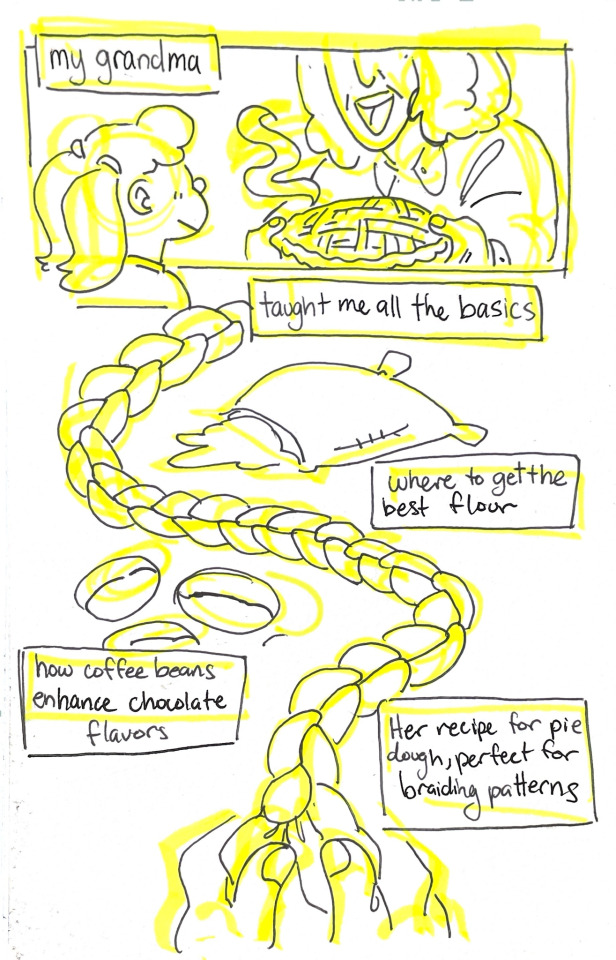 my grandma
taught me all the basics
where to get the
best flour
how coffee beans
enhance chocolate
flavors
Her recipe for pie
dough, perfect for
braiding patterns